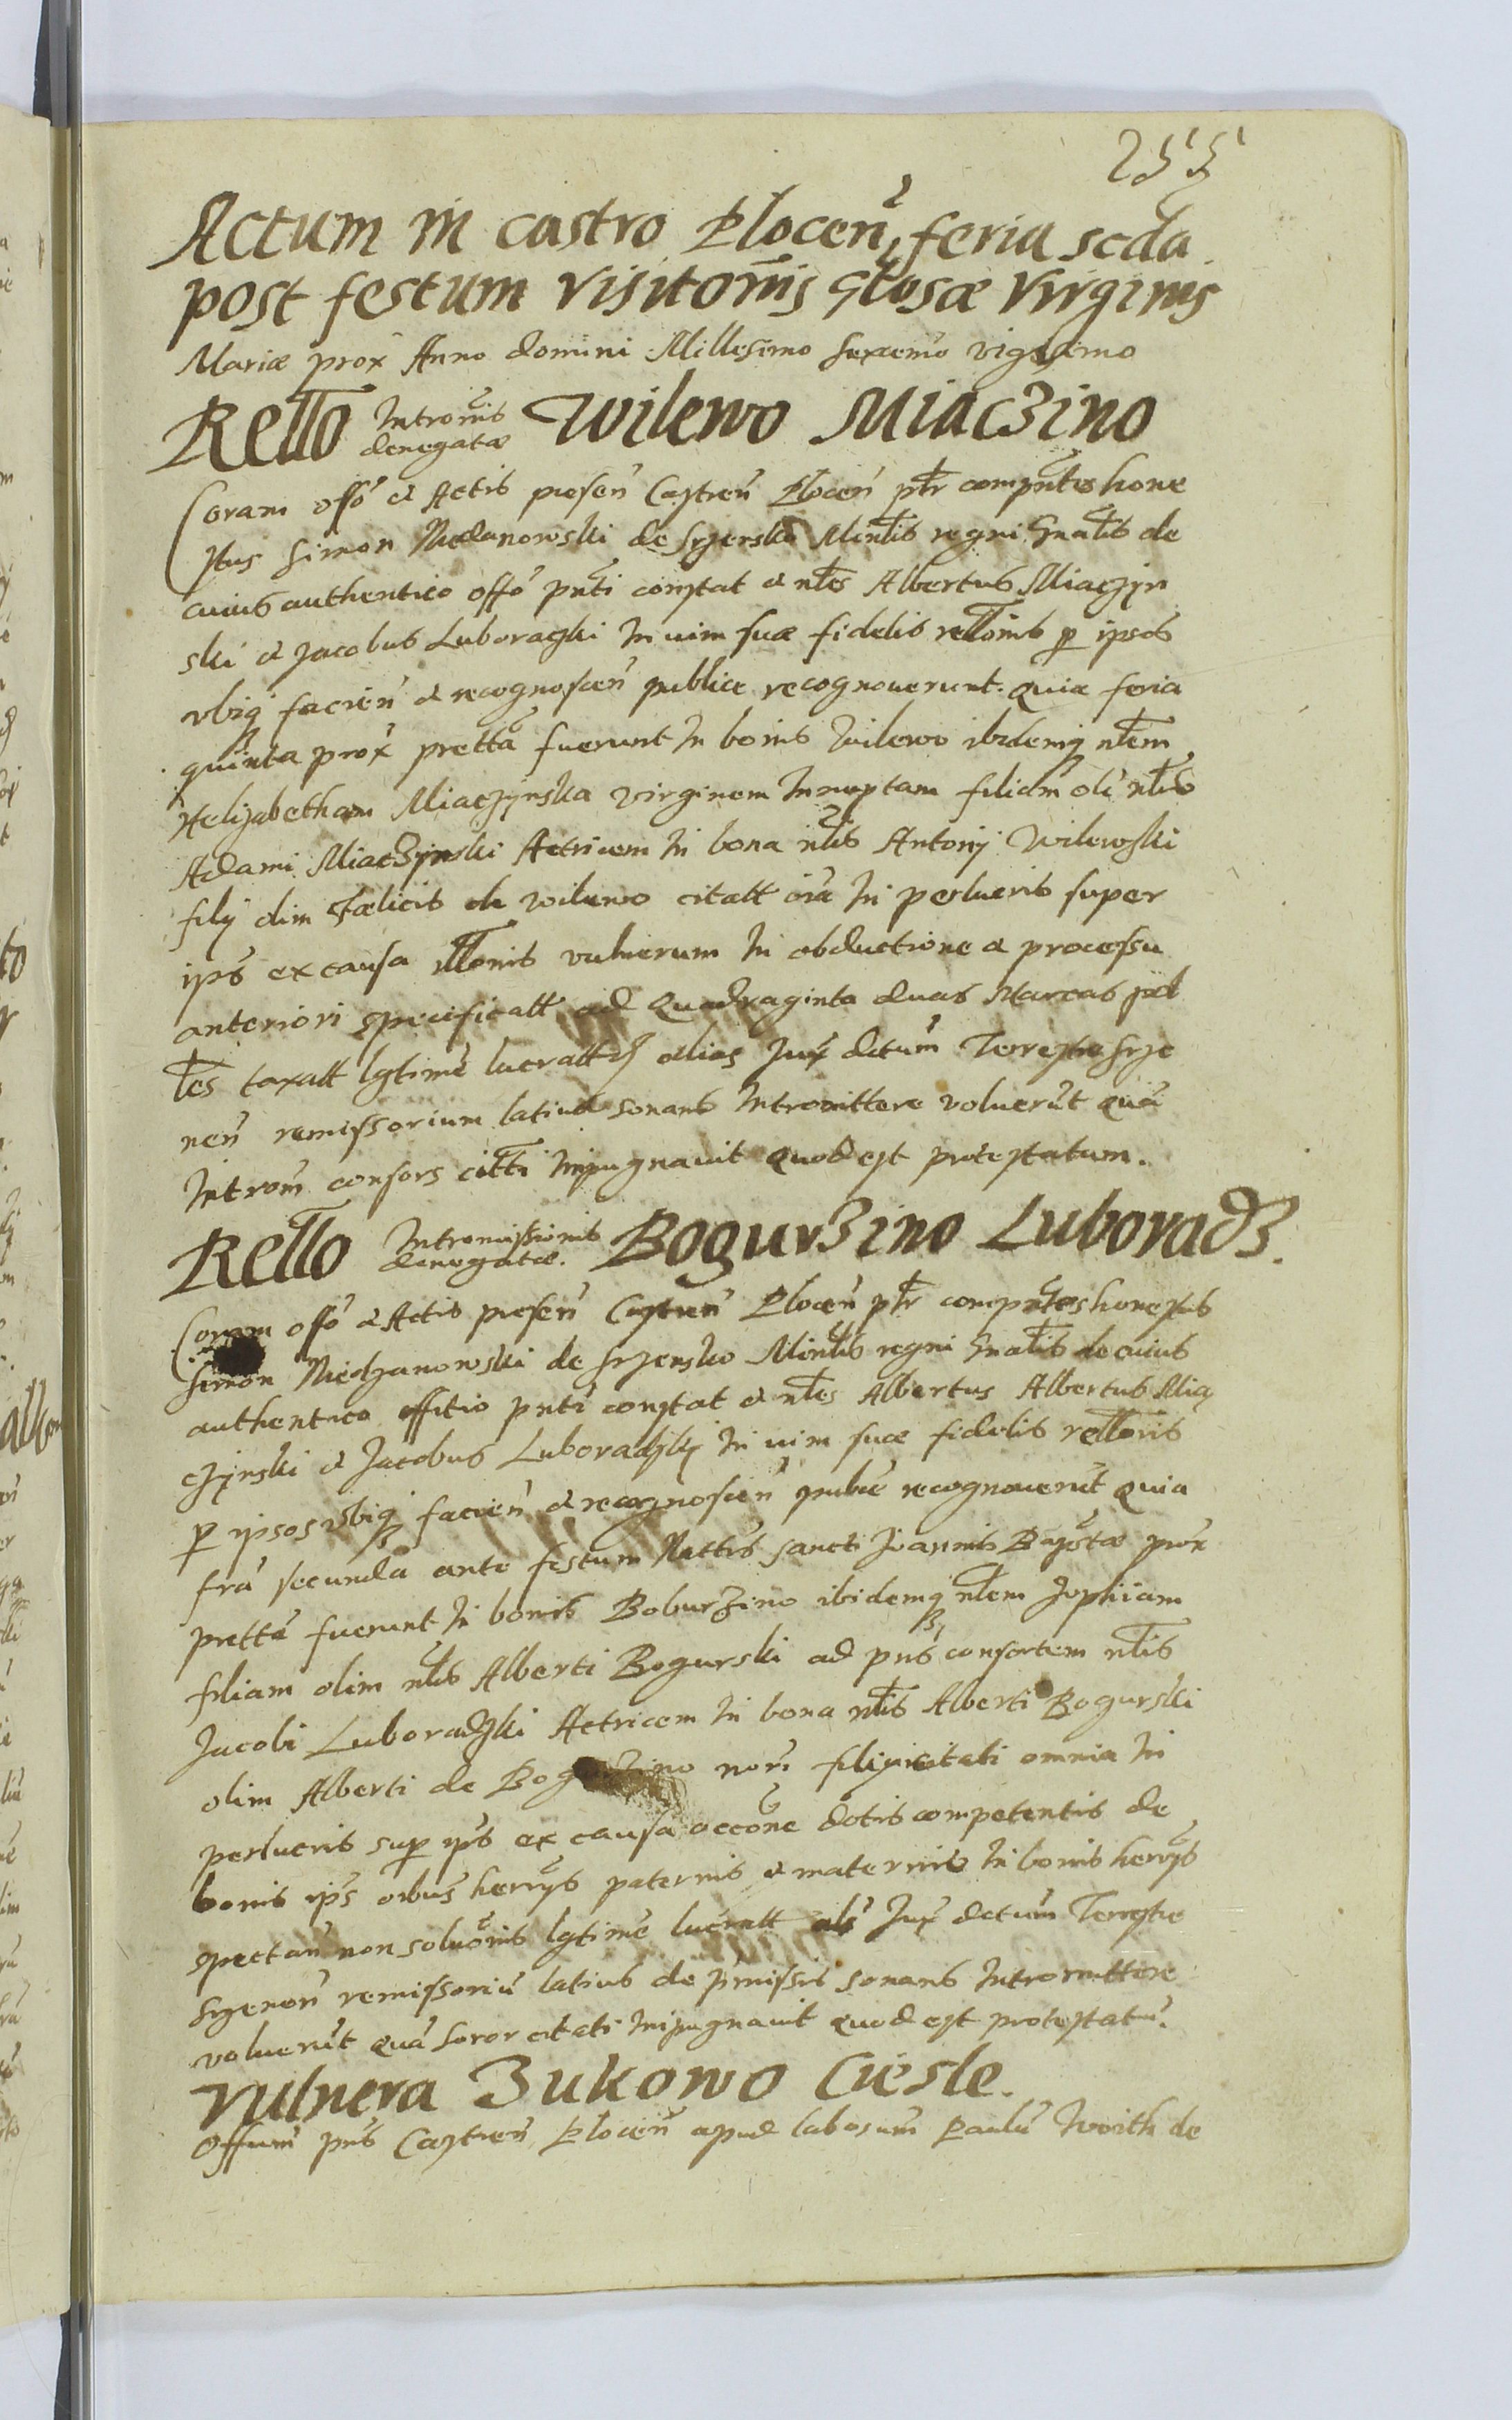 255
Actum in castro Plocen feria scda
post festum visitonis Glosæ virginis
Mariæ prox Anno domini Millesimo sexcemo vigesimo
Rello Intromis denegatæ Wilewo Miaczino
Coram offo et Actis presen Castren Plocen ptr compntes hone
stus Simon Niedanowski de Srzensko Minlis regni Gnalis de
cuius authentico offo pnti constat et nles Albertus Miaczyn
ski et Jacobus Luboradzki In vim suæ fidelis rellonis p ipsos
vbiq facien et recognoscen publice recognouerunt. Quia feria
quinta prox pretta fuerunt In bonis Wilewo ibidemq nlem
Helizabetham Miaczynska virginem Innuptam filiam oli nlis
Adami Miaczynski Actricem In bona nlis Antonij Wilewski
filij olim Fælicis de Wilewo citatt oia In perlucris super
ips ex causa illonis vulnerum In obductione et processu
anteriori specificatt ad Quadraginta duas Marcas pol
les taxatt lgtime lucratt alias Jux dctum Terrestre Srze
nen remissorium latius sonans Intromittere voluerut quã
Introm consors citti Impugnauit quod est protestatum.
Rello Intromissionis denegatæ. Bogurzino Luboradz.
Coram offo et Actis presen Castren Plocen ptr compntes honestus
Simon Niedzanowski de Srzensko Minlis regni Gnalis de cuius
authentico offitio pnti constat et nles Albertus Albertus Mia
czynski et Jacobus Luboradzkj In vim suæ fidelis rellonis
p ipsos vbiq facien et recognoscen publice recognouerut Quia
fra secunda ante festum Nattis sancti Joannis Baptæ prox
pretta fuerunt In bonis Boburzino ibidemq nlem Zophiam
filiam olim nlis Alberti Bogurski ad pns consortem nlis
Jacobi Luboradzki Actricem In bona nlis Alberti Bogurski
olim Alberti de Bogurzino filij citati omnia In
perlucris sup ips ex causa accone dotis competentis de
bonis ips oibus herrys paternis et maternis In bonis herrys
spectan non soluonis lgtime lucratt als Jux dctum Terrestre
Srzenen remissoriu latius de pmissis sonans Intromittere
voluerut quã soror citati Impugnauit quod est protestatu.
Vulnera Zukowo Ciesle.
Offium pns Castren Plocen apud labosum Paulu Woith de